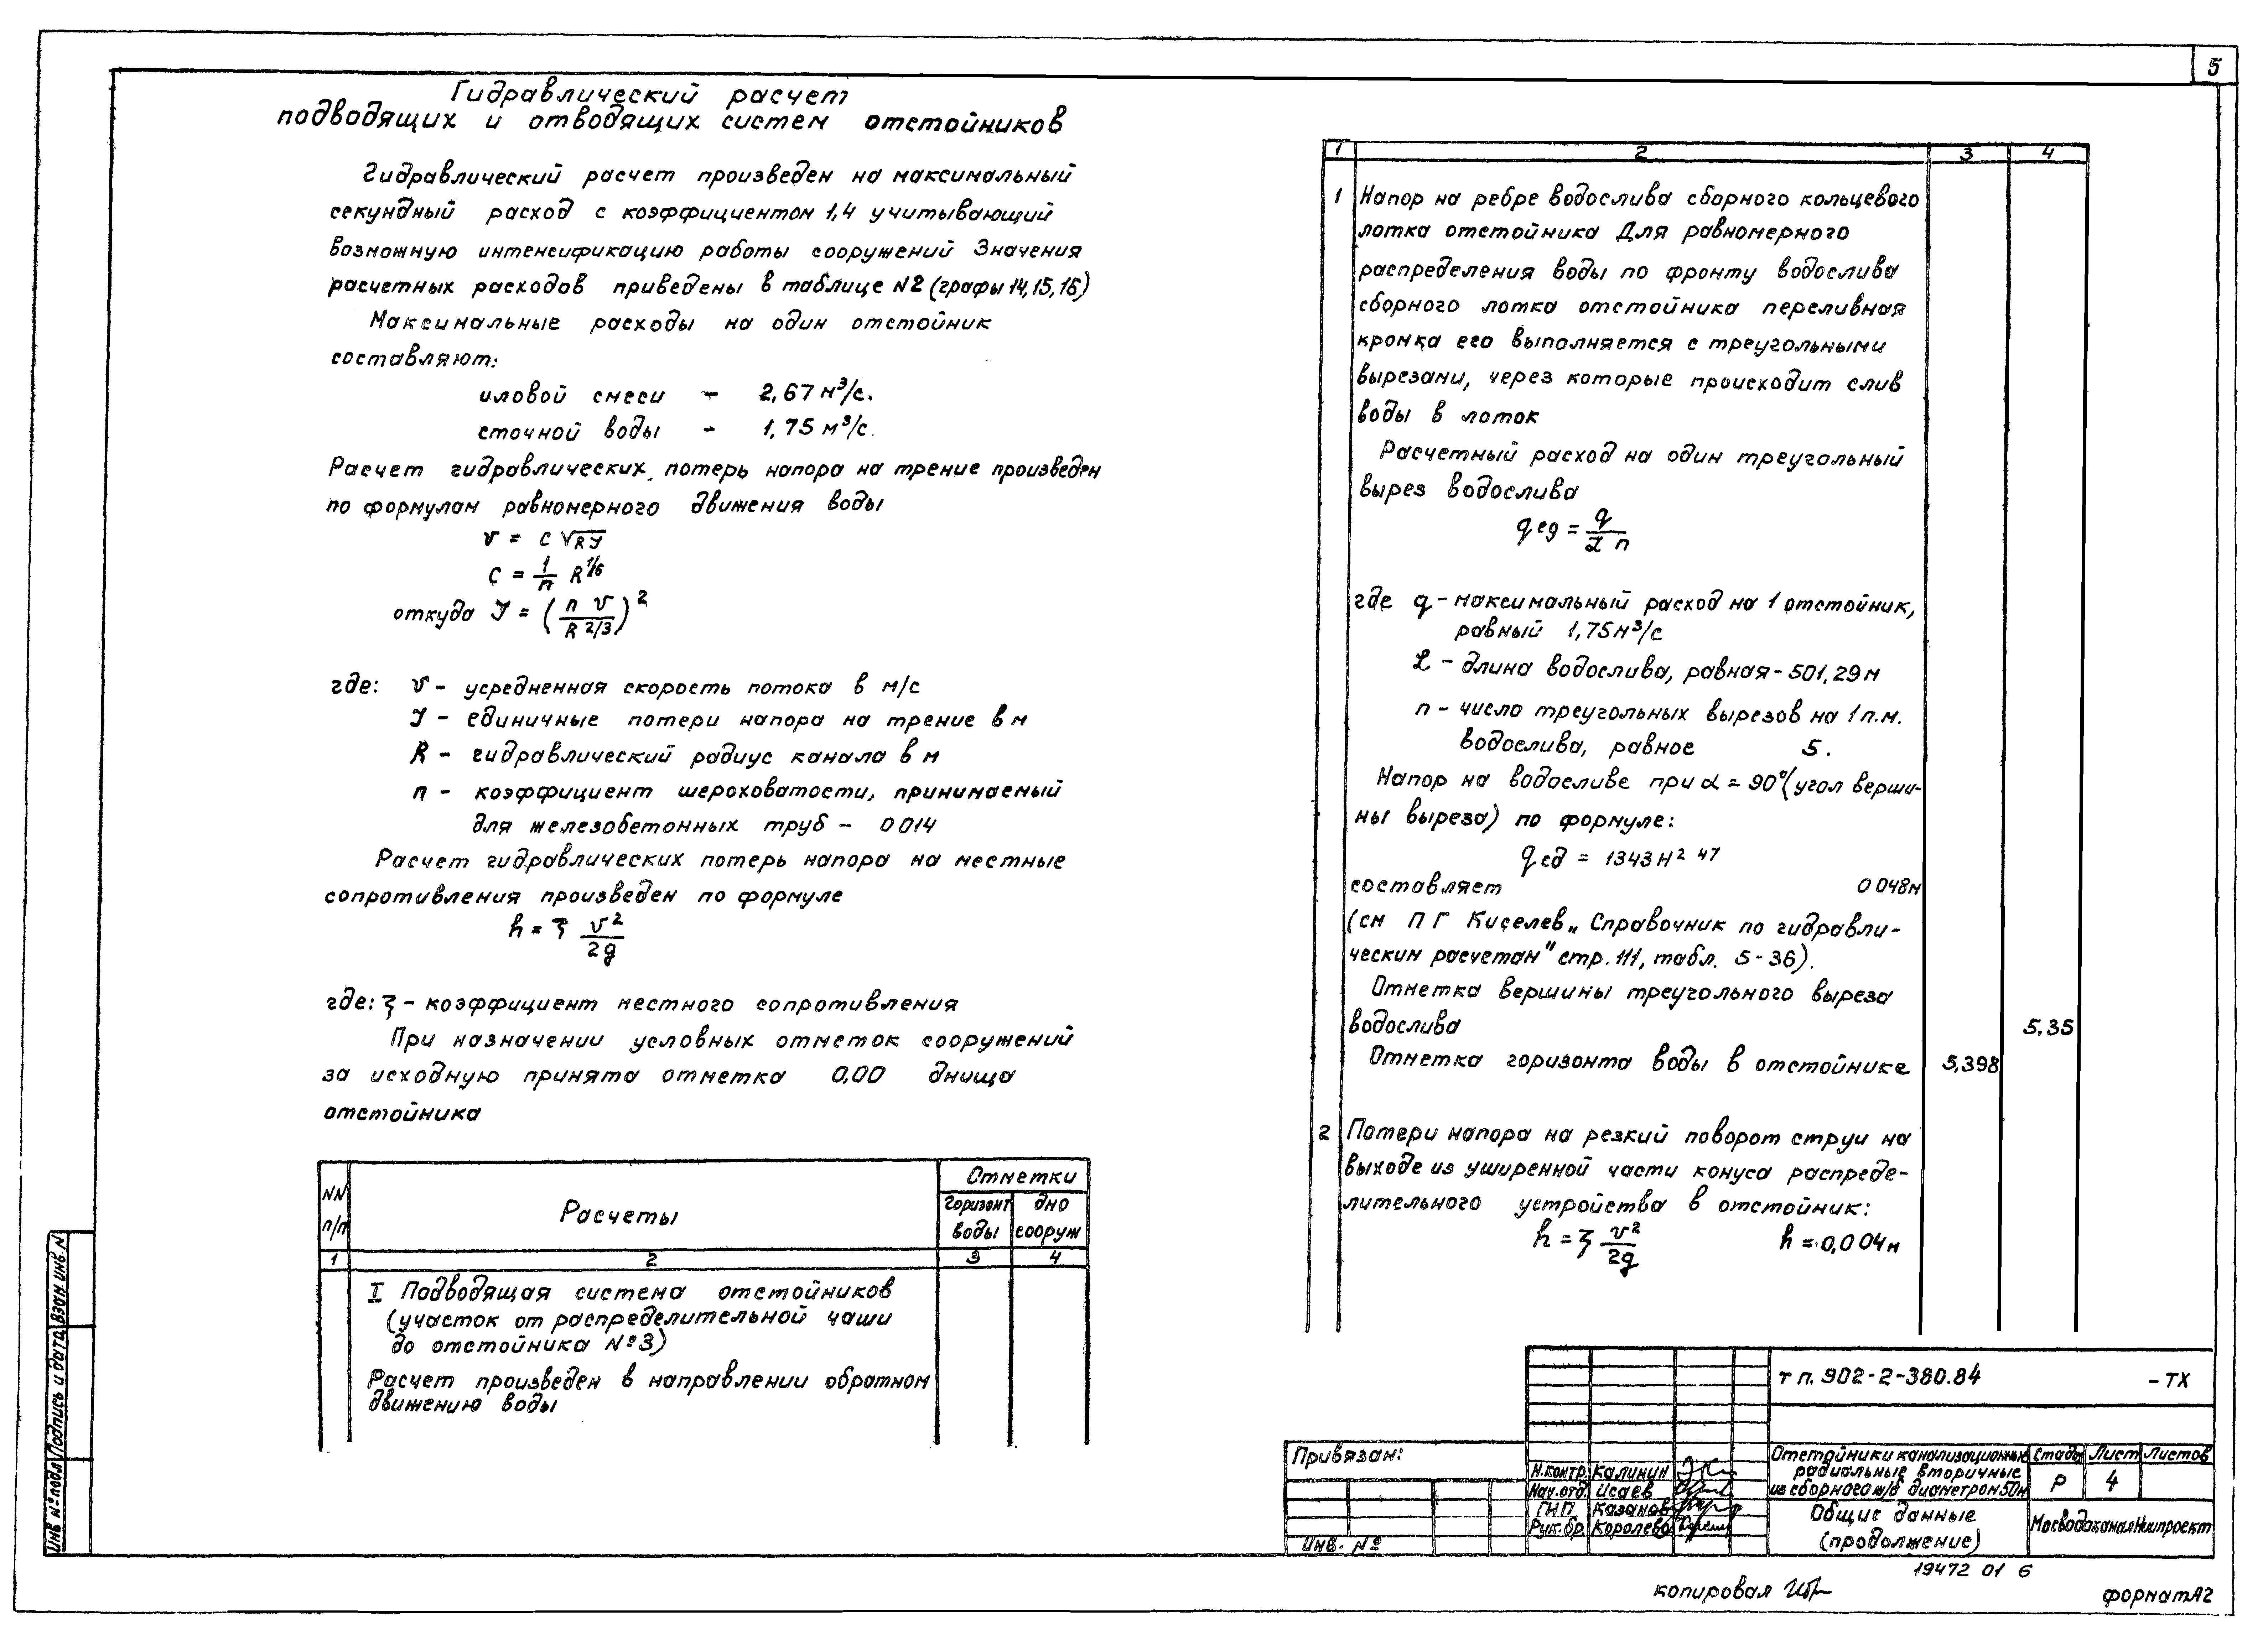 5
Гидравлический расчет
подводящих и отводящих систем отстойников
Гидравлический расчет произведен на максимальный
секундный расход с коэффициентом 1,4 учитывающий
возможную интенсификацию работы сооружений Значения
расчетных расходов приведены в таблице N2 (графы 14,15,16)
Максимальные расходы на один отстойник
составляют:
иловой смеси – 2,67 м³/с.
сточной воды – 1,75 м³/с.
Расчет гидравлических потерь напора на трение произведен
по формулам равномерного движения воды
v = C √RJ
C = 1/n R^1/6
откуда J = (n v / R^2/3)²
где: v – усредненная скорость потока в м/с
J – единичные потери напора на трение в м
R – гидравлический радиус канала в м
n – коэффициент шероховатости, принимаемый
для железобетонных труб – 0 014
Расчет гидравлических потерь напора на местные
сопротивления произведен по формуле
h = ξ v²/2g
где: ξ – коэффициент местного сопротивления
При назначении условных отметок сооружений
за исходную принята отметка 0,00 днища
отстойника
NN п/п
Расчеты
Отметки
горизонт воды
дно сооруж
1 2 3 4
I Подводящая система отстойников
(участок от распределительной чаши
до отстойника №3)
Расчет произведен в направлении обратном
движению воды
1 2 3 4
1 Напор на ребре водослива сборного кольцевого
лотка отстойника Для равномерного
распределения воды по фронту водослива
сборного лотка отстойника переливная
кромка его выполняется с треугольными
вырезами, через которые происходит слив
воды в лоток
Расчетный расход на один треугольный
вырез водослива
qед = q/L n
где q – максимальный расход на 1 отстойник,
равный 1,75м³/с
L – длина водослива, равная – 501,29 м
n – число треугольных вырезов на 1 п.м.
водослива, равное 5.
Напор на водосливе при α = 90° (угол верши-
ны выреза) по формуле:
qед = 1343 H² 47
составляет 0 048м
(см П Г Киселев „Справочник по гидравли-
ческим расчетам" стр. 111, табл. 5-36).
Отметка вершины треугольного выреза
водослива 5,35
Отметка горизонта воды в отстойнике 5,398
2 Потери напора на резкий поворот струи на
выходе из уширенной части конуса распреде-
лительного устройства в отстойник:
h = ξ v²/2g h = 0,004м
т п. 902-2-380.84 -ТХ
Привязан:
Инв. №
Н.контр. Калинин
Нач.отд. Исаев
ГИП Казанов
Рук.бр. Королева
Отстойники канализационные
радиальные вторичные
из сборного ж/б диаметром 50м
Стадия Лист Листов
Р 4
Общие данные
(продолжение)
МосводоканалНиипроект
19472 01 6
копировал
формат А2
Инв № подл Подпись и дата Взам инв. N